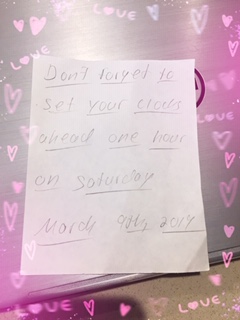 LOVE
LOVE
Don't forget to
Set your clocks
LOVE
ahead one hour
on Saturday
March 9th, 2019
LOVE
LOVE